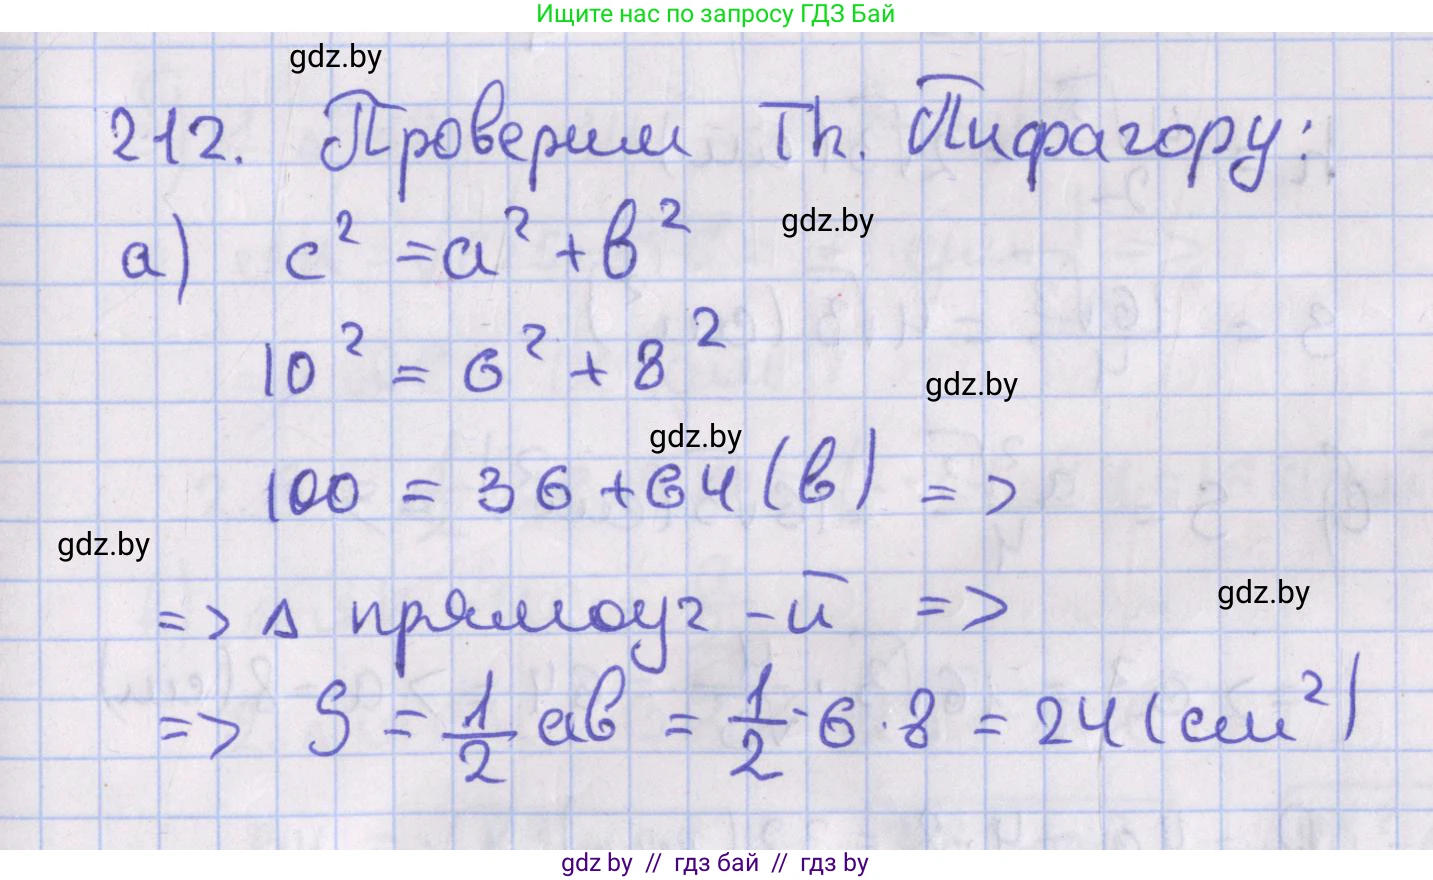 Ищите нас по запросу ГДЗ Бай
gdz.by
212. Проверим Th. Пифагору:
gdz.by
а) c² = a² + b²
10² = 6² + 8²
gdz.by
gdz.by
100 = 36 + 64 (в) =>
gdz.by
gdz.by
=> Δ прямоуг-й =>
=> S = 1/2 ab = 1/2 · 6 · 8 = 24 (см²)
gdz by // гдз бай // gdz by